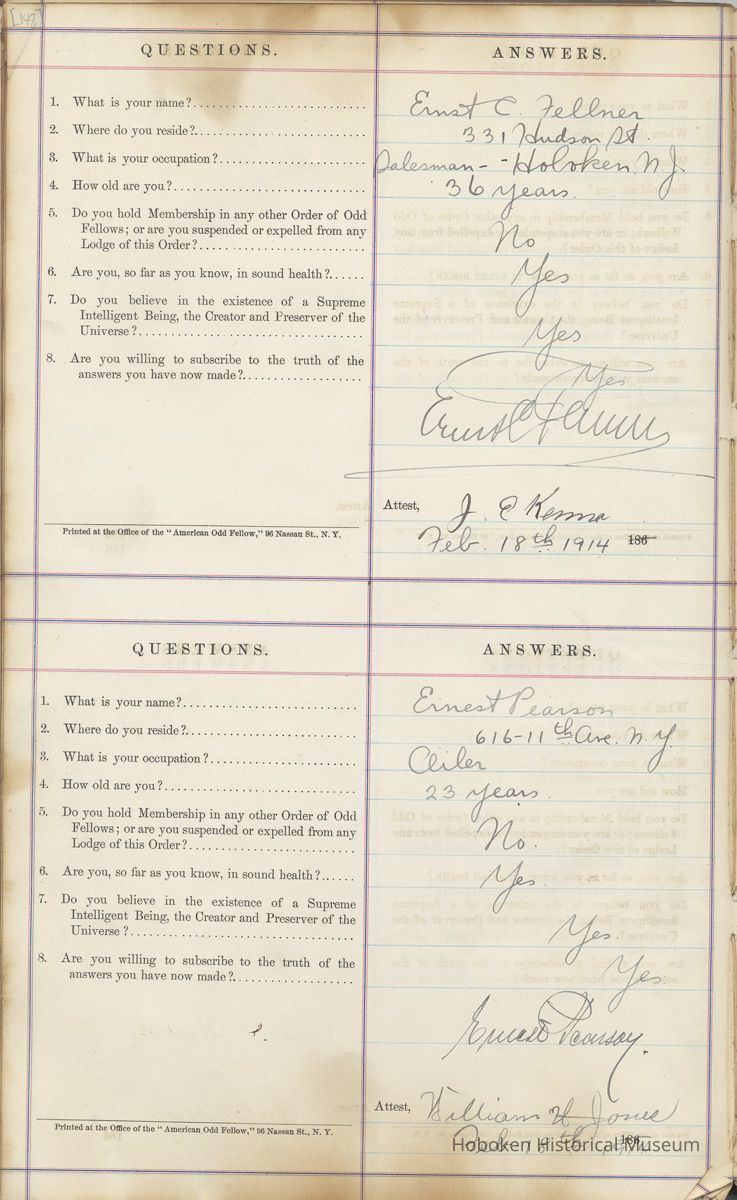 [142]
QUESTIONS.
ANSWERS.
1. What is your name?
Ernst C. Fellner
2. Where do you reside?
331 Hudson St.
3. What is your occupation?
Salesman - - Hoboken, N.J.
4. How old are you?
36 years.
5. Do you hold Membership in any other Order of Odd
Fellows; or are you suspended or expelled from any
Lodge of this Order?
No
6. Are you, so far as you know, in sound health?
Yes
7. Do you believe in the existence of a Supreme
Intelligent Being, the Creator and Preserver of the
Universe?
Yes
8. Are you willing to subscribe to the truth of the
answers you have now made?
Yes
Ernst C Fellner
Attest, J. E Kenna
Feb. 18th 1914 186
Printed at the Office of the "American Odd Fellow," 96 Nassau St., N. Y.
QUESTIONS.
ANSWERS.
1. What is your name?
Ernest Pearson
2. Where do you reside?
616-11th Ave. N.Y.
3. What is your occupation?
Oiler
4. How old are you?
23 years.
5. Do you hold Membership in any other Order of Odd
Fellows; or are you suspended or expelled from any
Lodge of this Order?
No.
6. Are you, so far as you know, in sound health?
Yes.
7. Do you believe in the existence of a Supreme
Intelligent Being, the Creator and Preserver of the
Universe?
Yes.
8. Are you willing to subscribe to the truth of the
answers you have now made?
Yes.
Ernest Pearson.
Attest, William H Jones
Feb. 18th 186
Printed at the Office of the "American Odd Fellow," 96 Nassau St., N. Y.
Hoboken Historical Museum